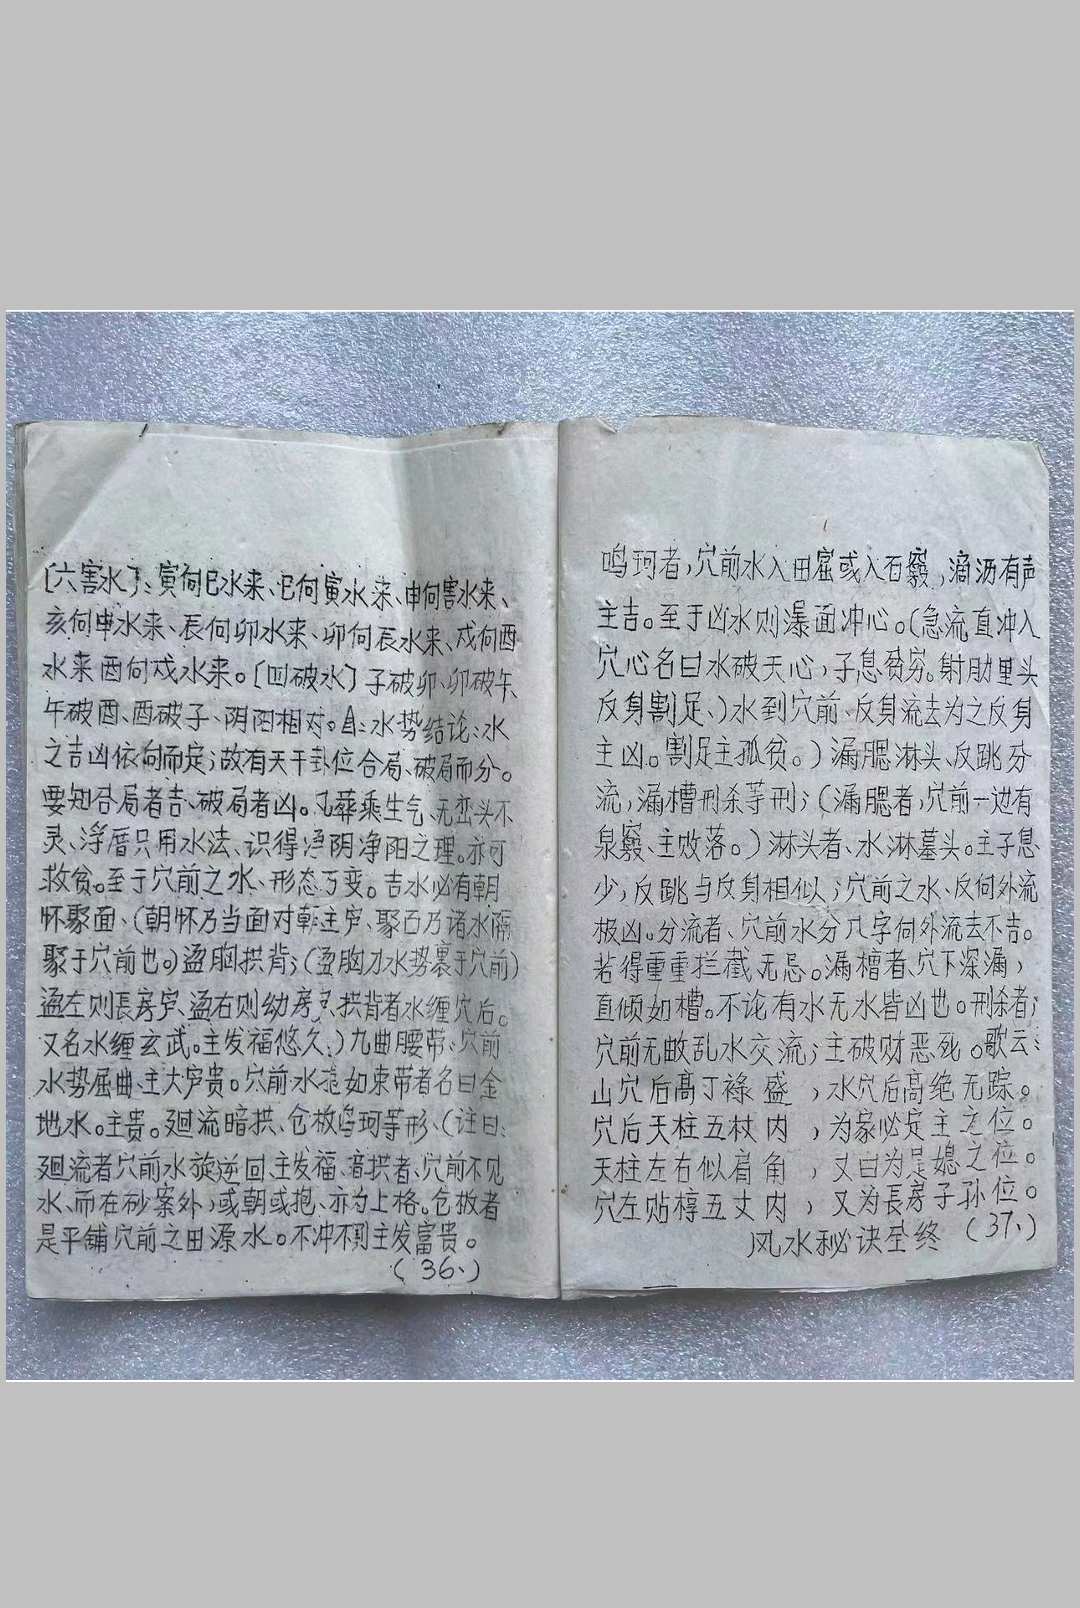 [六害水]：寅向巳水来、巳向寅水来、申向害水来、
亥向申水来、辰向卯水来、卯向辰水来、戌向酉
水来酉向戌水来。[四破水]子破卯、卯破午、
午破酉、酉破子、阴阳相对。水势结论：水
之吉凶依向而定；故有天干卦位合局、破局而分。
要知合局者吉、破局者凶。凡葬乘生气、无峦头不
灵、浮厝只用水法、识得净阴净阳之理。亦可
救贫。至于穴前之水、形态万变。吉水必有朝
怀聚面、(朝怀乃当面对朝主、聚面乃诸水隔
聚于穴前也。)荡胸拱背；(荡胸乃水势裹于穴前)
荡左则長房、荡右则幼房、拱背者水缠穴后。
又名水缠玄武。主发福悠久、)九曲腰带、穴前
水势屈曲、主大贵。穴前水如束带者名曰金
地水。主贵。廻流暗拱、仓板鸣珂等形、(注曰：
廻流者穴前水旋逆回、主发福、暗拱者、穴前不见
水、而在砂案外，或朝或抱、亦为上格。仓板者
是平铺穴前之田源水。不冲不到主发富贵。
(36、)
鸣珂者，穴前水入田窟或入石窍，滴沥有声
主吉。至于凶水则瀑面冲心。(急流直冲入
穴心名曰水破天心，子息贫穷。射肋里头
反身割足、)水到穴前、反身流去为之反身
主凶。割足主孤贫。)漏腮淋头、反跳分
流，漏槽刑杀等形；(漏腮者，穴前一边有
泉窍、主败落。)淋头者、水淋墓头。主子息
少，反跳与反身相似；穴前之水、反向外流
极凶。分流者、穴前水分八字向外流去不吉。
若得重重拦截、无忌。漏槽者、穴下深漏，
直倾如槽。不论有水无水皆凶也。刑杀者；
穴前无故乱水交流；主破财恶死。歌云：
山穴后高丁禄盛，水穴后高绝无踪。
穴后天柱五杖内，为家必定主之位。
天柱左右似肩角，又曰为是媳之位。
穴左贴椁五丈内，又为長房子孙位。
(37、)
风水秘诀全终